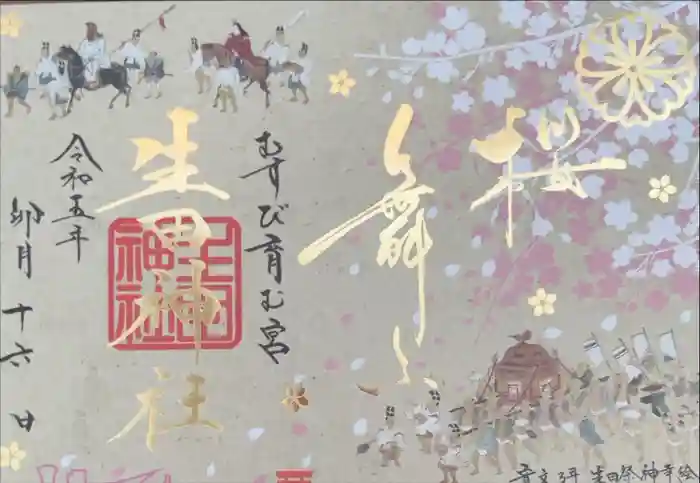 桜
舞
むすび育む宮
生田神社
生田神社
令和五年
卯月十六日
生田祭神幸絵